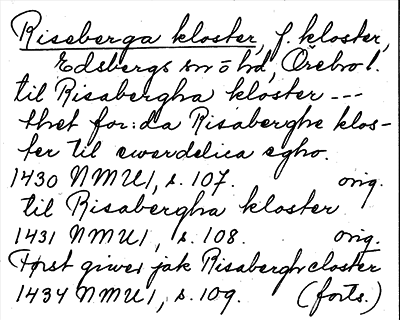 Riseberga kloster, f. kloster,
Edsbergs sn o hd, Örebro l.
til Risabergha kloster ---
thet for:da Risaberghe klos-
ter til ewerdelica egho.
1430 NMU1, s. 107. orig.
til Risabergha kloster
1431 NMU1, s. 108. orig.
Først giwer jak Risaberghcloster
1434 NMU1, s. 109. (forts.)